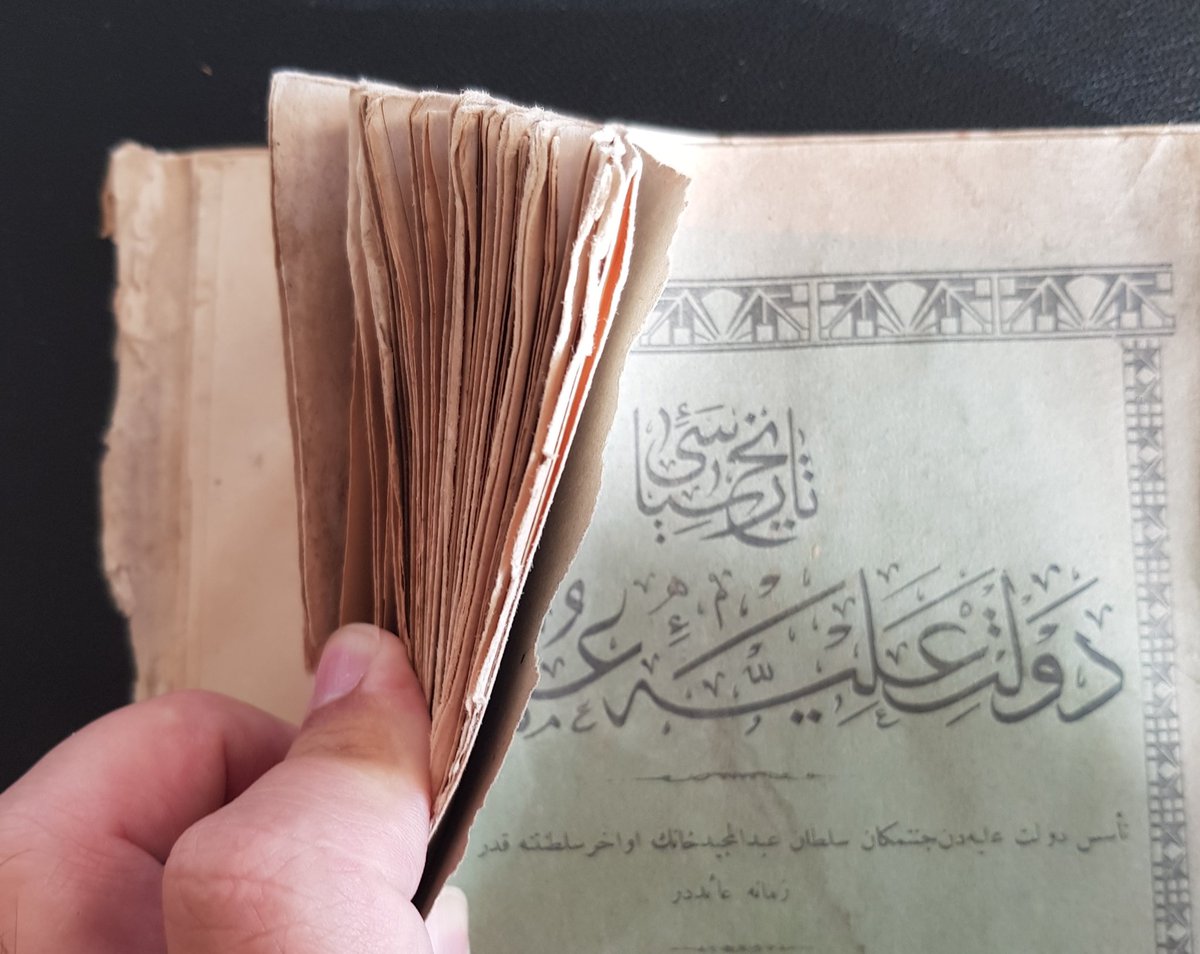 تاریخ سیاسئ
دولت علیۀ
تأسس دولت علیه‌دن جنتمکان سلطان عبدالمجیدخانك اواخر سلطنتنه قدر
زمانه عائددر